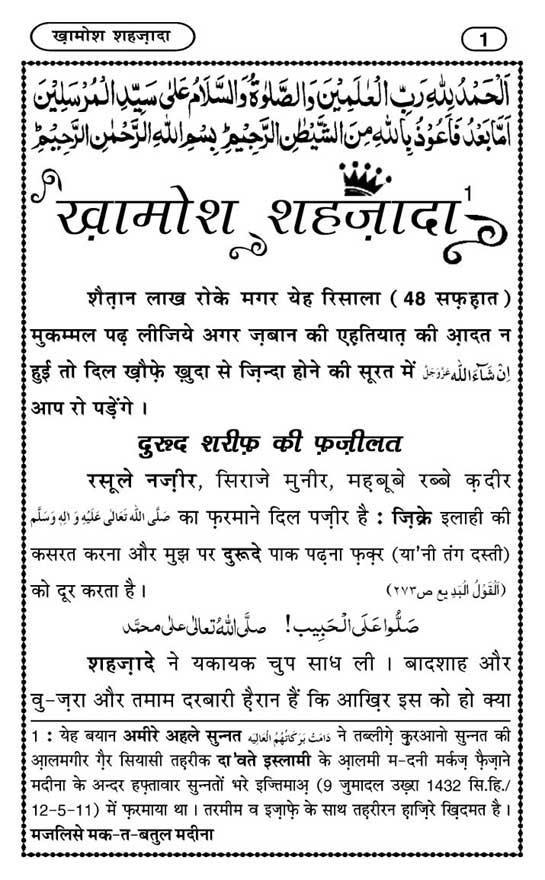 ख़ामोश शहज़ादा
1
اَلْحَمْدُ لِلّٰهِ رَبِّ الْعٰلَمِیْنَ وَالصَّلٰوةُ وَالسَّلَامُ عَلٰی سَیِّدِ الْمُرْسَلِیْنَ
اَمَّا بَعْدُ فَاَعُوْذُ بِاللّٰهِ مِنَ الشَّیْطٰنِ الرَّجِیْمِ ؕ بِسْمِ اللّٰهِ الرَّحْمٰنِ الرَّحِیْمِ ؕ
ख़ामोश शहज़ादा 1
शैत़ान लाख रोके मगर येह रिसाला ( 48 सफ़ह़ात )
मुकम्मल पढ़ लीजिये अगर ज़बान की एह़तियात़ की आ़दत न
हुई तो दिल ख़ौफ़े ख़ुदा से ज़िन्दा होने की सूरत में اِنْ شَآءَ اللّٰه عَزَّوَجَلَّ
आप रो पड़ेंगे ।
दुरूद शरीफ़ की फ़ज़ीलत
रसूले नज़ीर, सिराजे मुनीर, मह़बूबे रब्बे क़दीर
صَلَّی اللّٰهُ تَعَالٰی عَلَیْهِ وَاٰلِهٖ وَسَلَّم का फ़रमाने दिल पज़ीर है : ज़िक्रे इलाही की
कसरत करना और मुझ पर दुरूदे पाक पढ़ना फ़क़्र (या'नी तंग दस्ती)
को दूर करता है । (اَلْقَوْلُ الْبَدِیع ص۲۷۳)
صَلُّوْا عَلَی الْحَبِیْب! صلَّی اللّٰهُ تعالٰی علٰی محمَّد
शहज़ादे ने यकायक चुप साध ली । बादशाह और
वु-ज़रा और तमाम दरबारी ह़ैरान हैं कि आख़िर इस को हो क्या
1 : येह बयान अमीरे अहले सुन्नत دَامَتْ بَرَکَاتُهُمُ الْعَالِیَه ने तब्लीगे़ क़ुरआनो सुन्नत की
आ़लमगीर ग़ैर सियासी तह़रीक दा'वते इस्लामी के आ़लमी म-दनी मर्कज़ फै़ज़ाने
मदीना के अन्दर हफ़्तावार सुन्नतों भरे इज्तिमाअ़ (9 जुमादल उख़्रा 1432 सि.हि./
12-5-11) में फ़रमाया था । तरमीम व इज़ाफ़े के साथ तह़रीरन ह़ाज़िरे ख़िदमत है ।
मजलिसे मक-त-बतुल मदीना